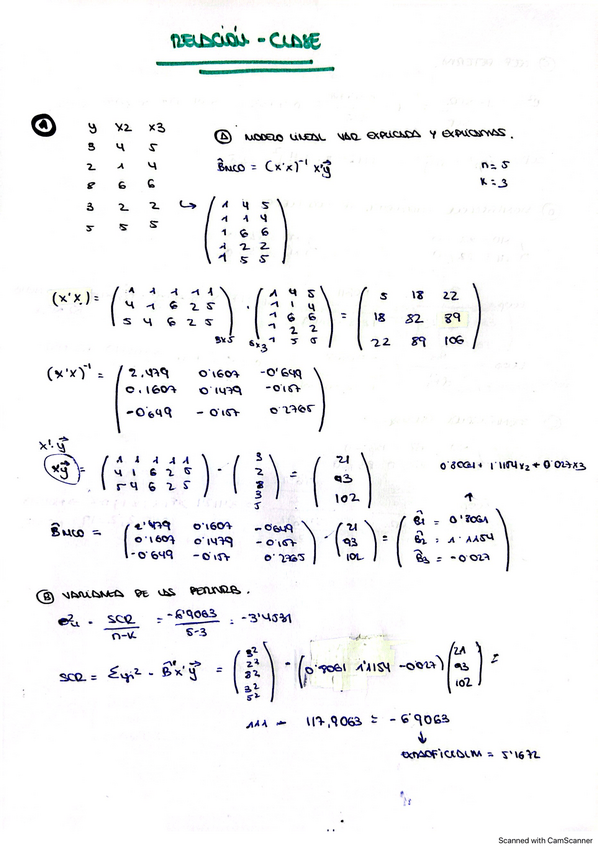 RELACIÓN - CLASE
1
y x2 x3
3 4 5
2 1 4
8 6 6
3 2 2
5 5 5
A MODELO LINEAL VAR EXPLICADA Y EXPLICATIVAS.
B̂MCO = (x'x)⁻¹ x'y⃗
n = 5
K = 3
1 4 5
1 1 4
1 6 6
1 2 2
1 5 5
(x'x) = ( 1 1 1 1 1 / 4 1 6 2 5 / 5 4 6 2 5 ) 3x5 · ( 1 4 5 / 1 1 4 / 1 6 6 / 1 2 2 / 1 5 5 ) 5x3 = ( 5 18 22 / 18 82 89 / 22 89 106 )
(x'x)⁻¹ = ( 2.479 0.1607 -0'649 / 0.1607 0.1479 -0.157 / -0.649 -0.157 0.2765 )
x'·y⃗
xy⃗ = ( 1 1 1 1 1 / 4 1 6 2 5 / 5 4 6 2 5 ) · ( 3 / 2 / 8 / 3 / 5 ) = ( 21 / 93 / 102 )
0.8061 + 1.1154x2 + 0.027x3
B̂MCO = ( 2.479 0.1607 -0.649 / 0.1607 0.1479 -0.157 / -0.649 -0.157 0.2765 ) · ( 21 / 93 / 102 ) = ( B̂1 = 0'8061 / B̂2 = 1.1154 / B̂3 = -0.027 )
B VARIANZA DE LAS PERTURB.
σ²u = SCR / n-K = -6'9063 / 5-3 = -3'4531
SCR = Σyi² - B̂'x'y⃗ = ( 3² / 2² / 8² / 3² / 5² ) - (0'8061 1'1154 -0.027) ( 21 / 93 / 102 ) =
111 - 117,9063 = -6'9063
↓
= 5'1672
Scanned with CamScanner